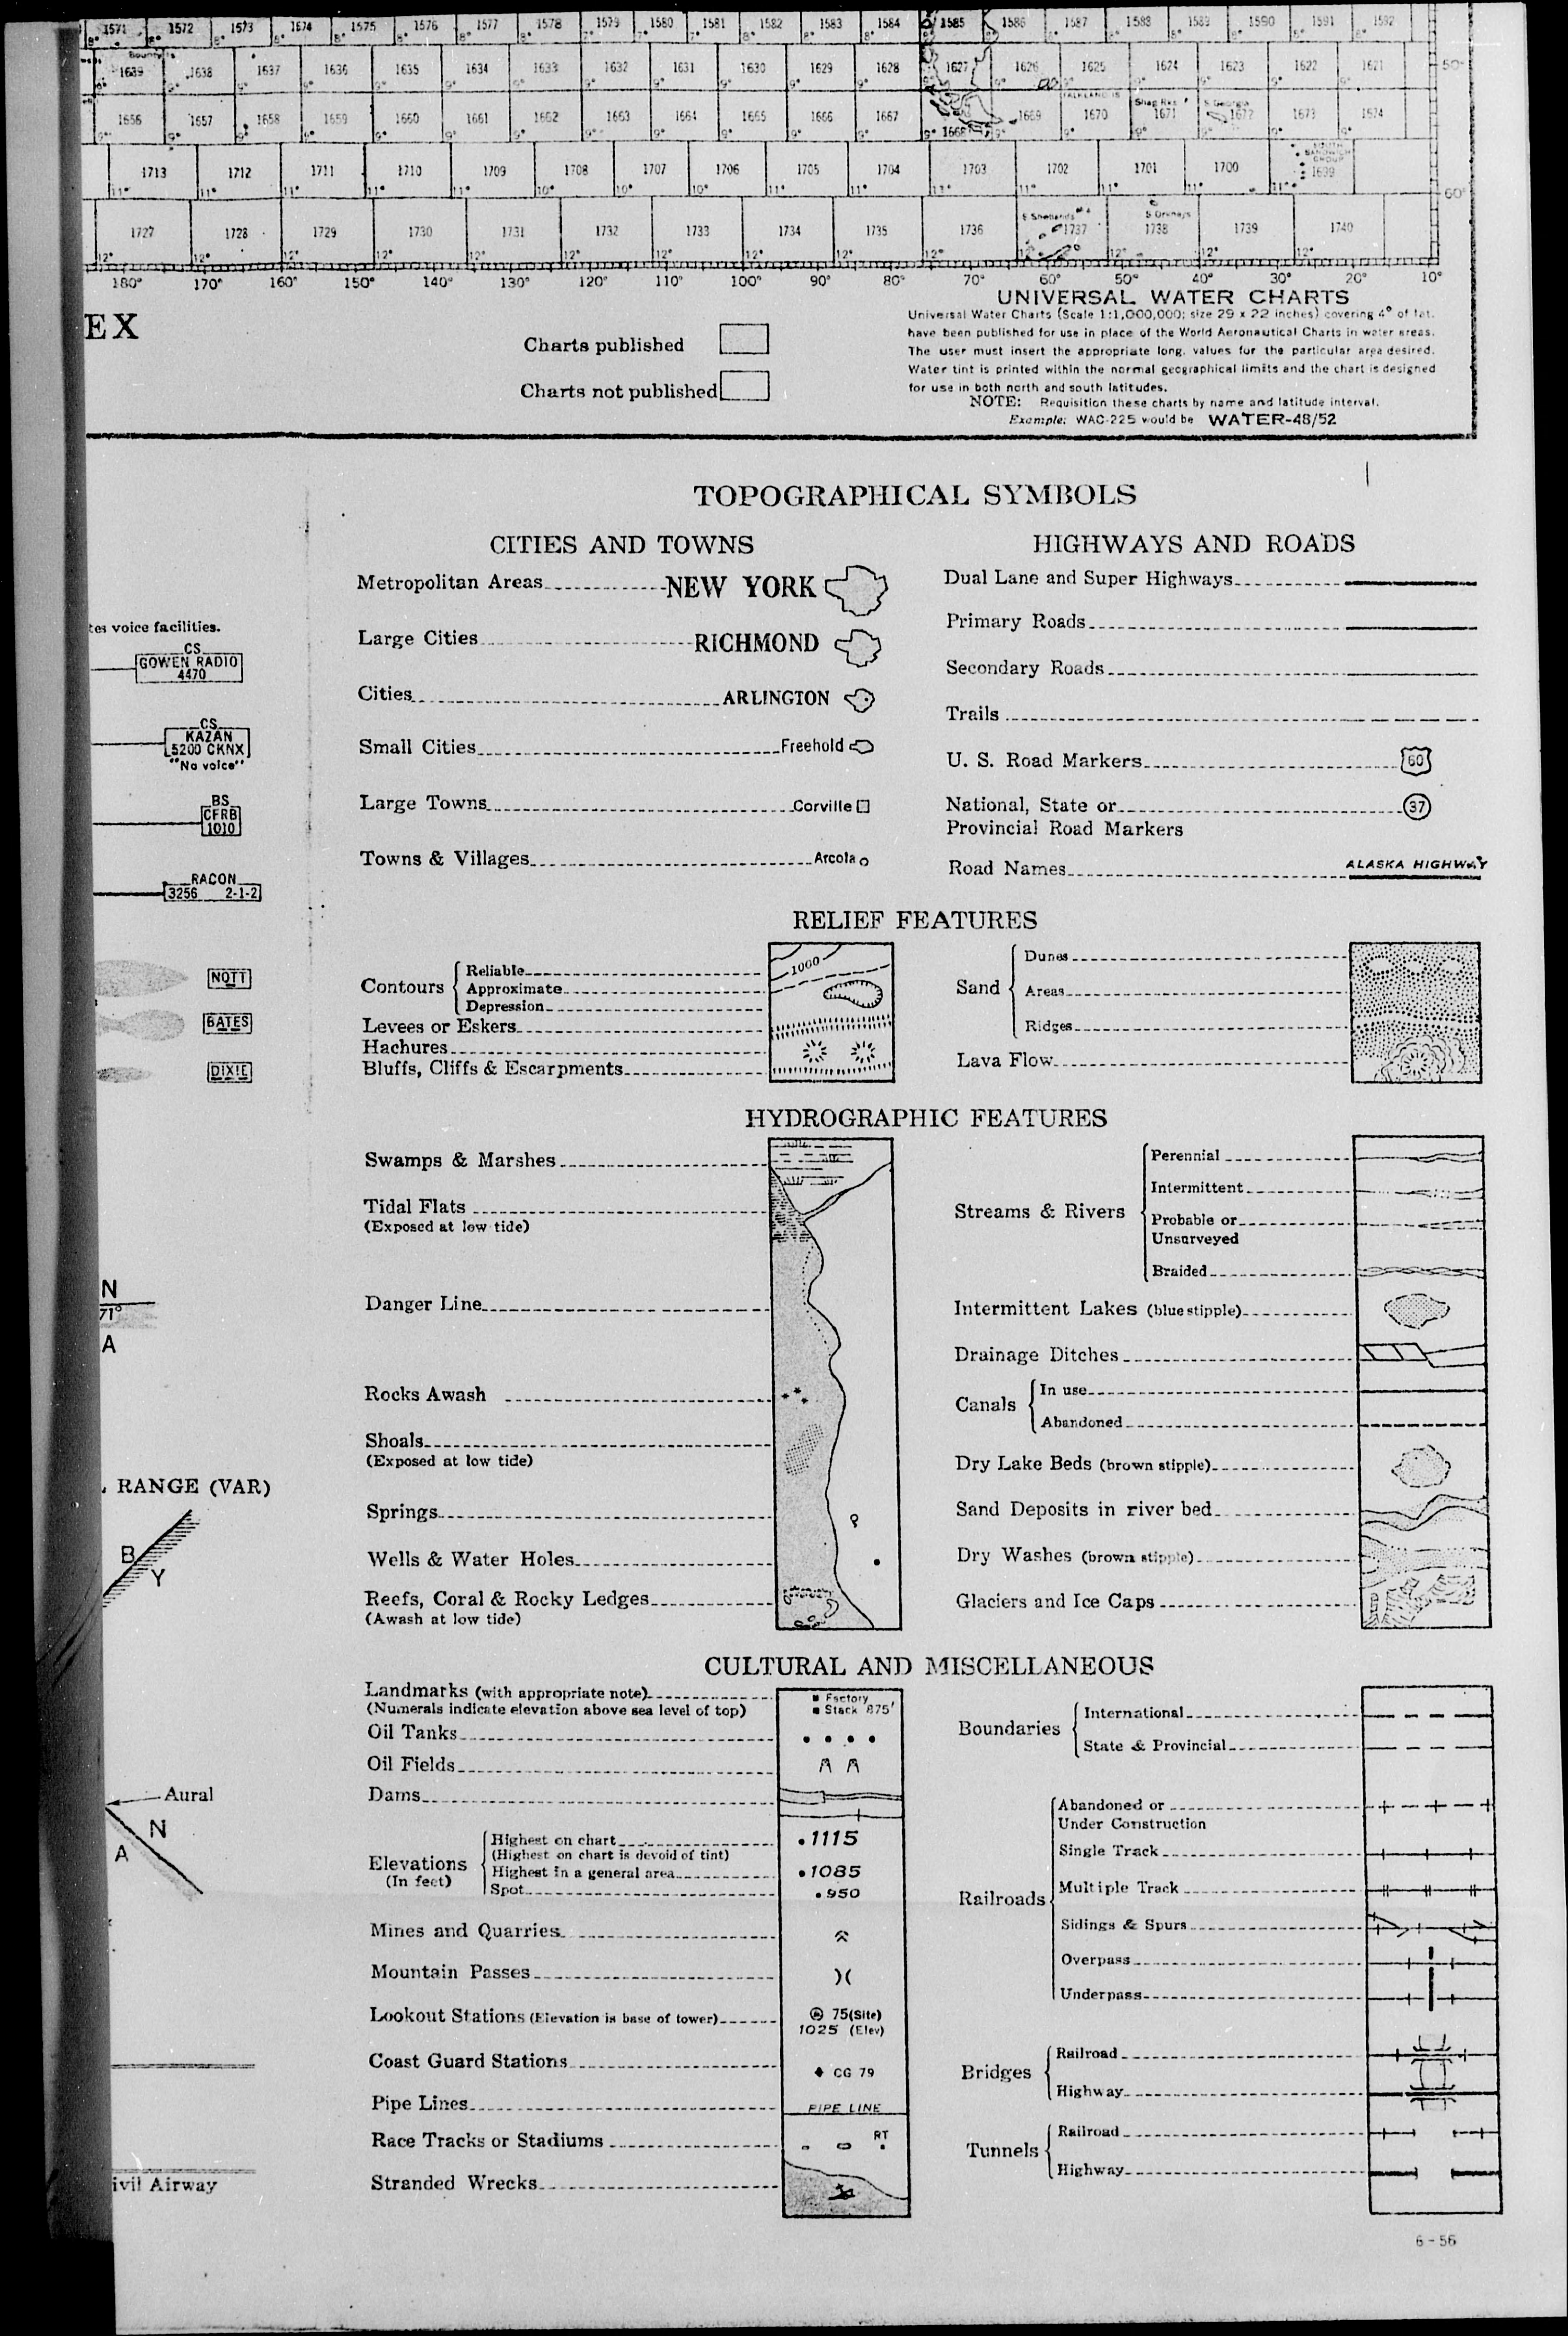 1571 1572 1573 1574 1575 1576 1577 1578 1579 1580 1581 1582 1583 1584 1585 1586 1587 1588 1589 1590 1591 1592
1639 1638 1637 1636 1635 1634 1633 1632 1631 1630 1629 1628 1627 1626 1625 1624 1623 1622 1621 50°
FALKLAND IS Shag Rks S Georgia
1656 1657 1658 1659 1660 1661 1662 1663 1664 1665 1666 1667 1668 1669 1670 1671 1672 1673 1674
SOUTH
SANDWICH
GROUP
1713 1712 1711 1710 1709 1708 1707 1706 1705 1704 1703 1702 1701 1700 1699
11° 11° 11° 11° 11° 10° 10° 10° 11° 11° 11° 11° 11° 11° 11° 60°
S Shetlands S Orkneys
1727 1728 1729 1730 1731 1732 1733 1734 1735 1736 1737 1738 1739 1740
12° 12° 12° 12° 12° 12° 12° 12° 12° 12° 12° 12° 12° 12°
180° 170° 160° 150° 140° 130° 120° 110° 100° 90° 80° 70° 60° 50° 40° 30° 20° 10°
EX
Charts published
Charts not published
UNIVERSAL WATER CHARTS
Universal Water Charts (Scale 1:1,000,000; size 29 x 22 inches) covering 4° of lat.
have been published for use in place of the World Aeronautical Charts in water areas.
The user must insert the appropriate long. values for the particular area desired.
Water tint is printed within the normal geographical limits and the chart is designed
for use in both north and south latitudes.
NOTE: Requisition these charts by name and latitude interval.
Example: WAC-225 would be WATER-48/52
tes voice facilities.
CS
GOWEN RADIO
4470
CS
KAZAN
5200 CKNX
"No voice"
BS
CFRB
1010
RACON
3256 2-1-2
NOTT
BATES
DIXIE
N
71°
A
RANGE (VAR)
B
Y
Aural
N
A
ivil Airway
TOPOGRAPHICAL SYMBOLS
CITIES AND TOWNS
Metropolitan Areas NEW YORK
Large Cities RICHMOND
Cities ARLINGTON
Small Cities Freehold
Large Towns Corville
Towns & Villages Arcola
HIGHWAYS AND ROADS
Dual Lane and Super Highways
Primary Roads
Secondary Roads
Trails
U. S. Road Markers 60
National, State or 37
Provincial Road Markers
Road Names ALASKA HIGHWAY
RELIEF FEATURES
Contours
Reliable
Approximate
Depression
1000
Levees or Eskers
Hachures
Bluffs, Cliffs & Escarpments
Sand
Dunes
Areas
Ridges
Lava Flow
HYDROGRAPHIC FEATURES
Swamps & Marshes
Tidal Flats
(Exposed at low tide)
Danger Line
Rocks Awash
Shoals
(Exposed at low tide)
Springs
Wells & Water Holes
Reefs, Coral & Rocky Ledges
(Awash at low tide)
Streams & Rivers
Perennial
Intermittent
Probable or
Unsurveyed
Braided
Intermittent Lakes (blue stipple)
Drainage Ditches
Canals
In use
Abandoned
Dry Lake Beds (brown stipple)
Sand Deposits in river bed
Dry Washes (brown stipple)
Glaciers and Ice Caps
CULTURAL AND MISCELLANEOUS
Landmarks (with appropriate note) Factory
(Numerals indicate elevation above sea level of top) Stack 875'
Oil Tanks
Oil Fields
Dams
Elevations
(In feet)
Highest on chart .1115
(Highest on chart is devoid of tint)
Highest in a general area .1085
Spot .950
Mines and Quarries
Mountain Passes
Lookout Stations (Elevation is base of tower) 75(Site)
1025 (Elev)
Coast Guard Stations CG 79
Pipe Lines PIPE LINE
Race Tracks or Stadiums RT
Stranded Wrecks
Boundaries
International
State & Provincial
Railroads
Abandoned or
Under Construction
Single Track
Multiple Track
Sidings & Spurs
Overpass
Underpass
Bridges
Railroad
Highway
Tunnels
Railroad
Highway
6-56